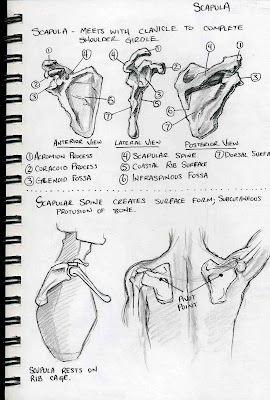 SCAPULA
SCAPULA - MEETS WITH CLAVICLE TO COMPLETE
SHOULDER GIRDLE.
④ ① ② ③ ⑤
① ② ③ ⑤
④ ① ② ③ ⑥ ⑦
ANTERIOR VIEW LATERAL VIEW POSTERIOR VIEW
① ACROMION PROCESS ④ SCAPULAR SPINE ⑦ DORSAL SURFA
② CORACOID PROCESS ⑤ COASTAL RIB SURFACE
③ GLENOID FOSSA ⑥ INFRASPINOUS FOSSA
SCAPULAR SPINE CREATES SURFACE FORM, SUBCUTANEOUS
PROTUSION OF BONE.
PIVOT
POINT
SCAPULA RESTS ON
RIB CAGE.